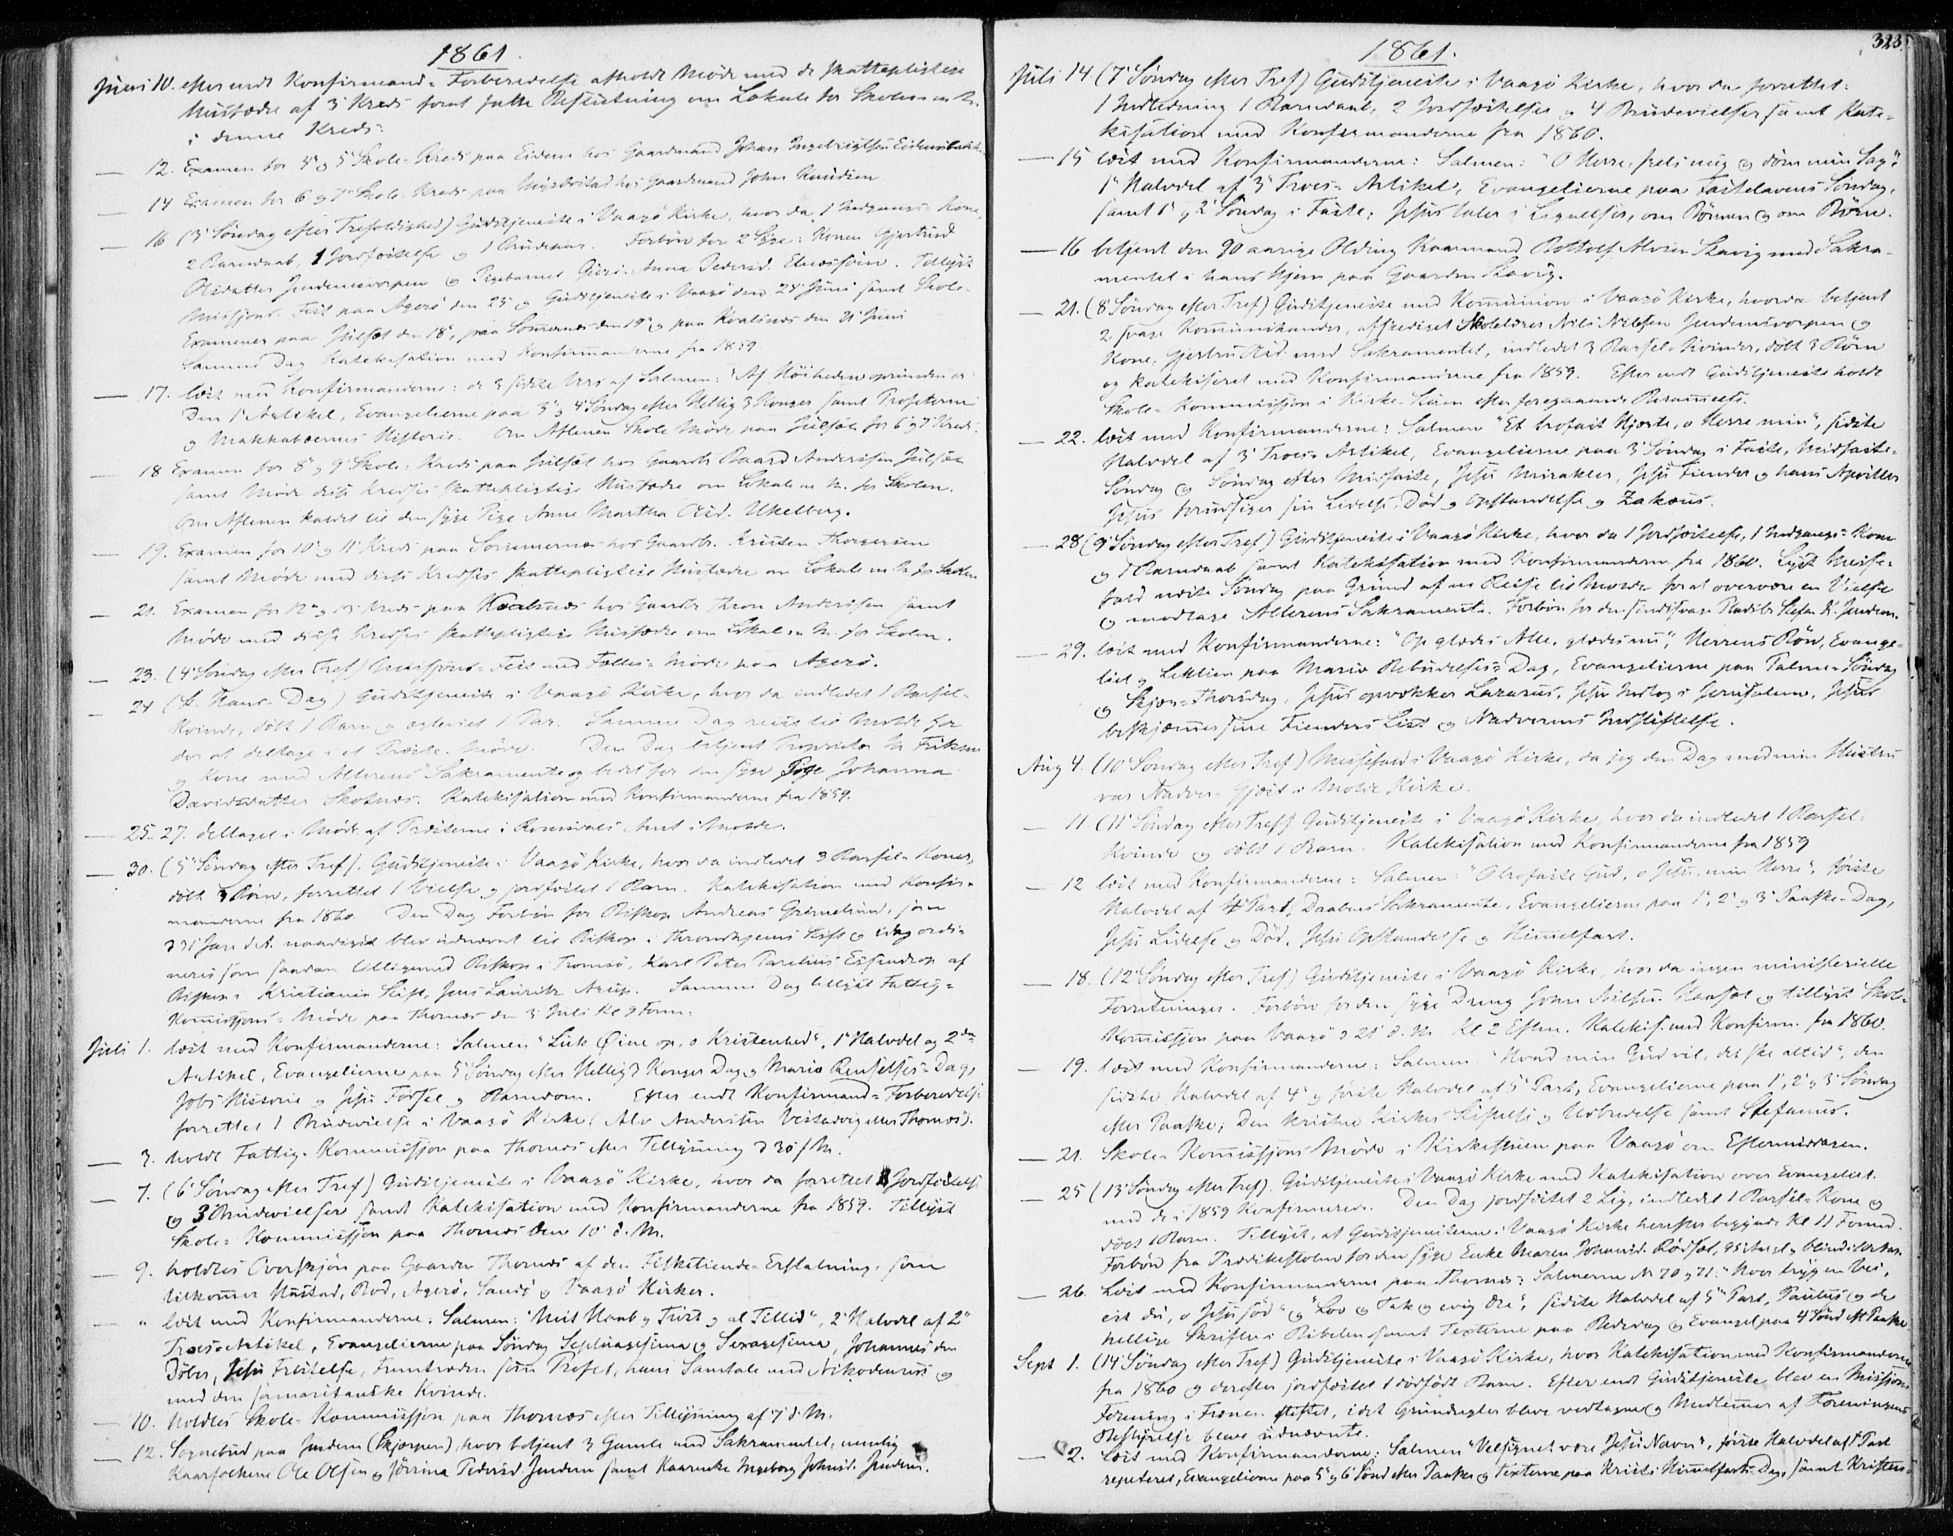 1861.
Juni 10. efter endt Konfirmand-Forberedelse afholdt Møde med de skattepligtige
Husfædre af 3 Kreds samt fatte Beslutning om Lokale for Skolen m. M.
i denne Kreds.
— 12. Examen for 4 og 5 Skole-Kreds paa Eidem hos Gaardmand Johan Ingebrigtsen
— 14 Examen for 6 og 7 Skole-Kreds paa hos Gaardmand John Knudsen
— 16 (3 Søndag efter Trefoldighed) Gudstjeneste i Vaagø Kirke, hvor da 1 Indgangs-Kone,
2 Barnedaab, 1 Jordfæstelse og 1 Forbøn for 2 Syge: Konen Gjertrud
Olsdatter og Pigebarnet Anna Pedersd. Tillyst
Missions-Fest paa Agerø den 23 og Gudstjeneste i Vaagø den 24 Juni samt Skole-
Examener paa Julsæt den 18, paa Sommernes den 19 og paa Kvalsnæs den 21 Juni
Samme Dag Katekisation med Konfirmanderne fra 1859
— 17. læst med Konfirmanderne: de 3 sidste Vers af Salmen: "Af Høiheden oprunden er
Den 1 Artikel, Evangelierne paa 3 og 4 Søndag efter Hellig 3 Konger samt Profeterne
og Makkabæernes Historie. Om Aftenen Skole Møde paa Julsæt for 6 og 7 Kreds.
— 18 Examen for 8 og 9 Skole-Kreds paa Julsæt hos Gaardb. Baard Andersen Julsæt
samt Møde disse Kredses skattepligtige Husfædre om Lokale m. M. for Skolen.
Om Aftenen kaldet til den syge Pige Anne Martha Ukelberg.
— 19. Examen for 10 og 11 Kreds paa Sommernes hos Gaardb. Kristen Thorgersen
samt Møde med disse Kredses skattepligtige Husfædre om Lokale m. M. for Skolen
— 21. Examen for 12 og 13 Kreds paa Kvalsnæs hos Gaardb. Thron Andersen samt
Møde med disse Kredses skattepligtige Husfædre om Lokale m. M. for Skolen.
— 23. (4 Søndag efter Tref) Missions-Fest med Fælles-Møde paa Agerø.
— 24 (St. Hans-Dag) Gudstjeneste i Vaagø Kirke, hvor da indledet 1 Barsel-
Kvinde, døbt 1 Barn og ægteviet 1 Par. Samme Dag reist til Molde for
der at deltage i et Præste-Møde. Den Dag betjent Proprietær M. Friksen
og Kone med Alterens Sakramente og bedt for den syge Pige Johanna
Davidsdatter Skotnæs. Katekisation med Konfirmanderne fra 1859.
— 25-27. deltaget i Møde af Præsterne i Romsdals Amt i Molde.
— 30. (5 Søndag efter Tref). Gudstjeneste i Vaagø Kirke, hvor da indledet 3 Barsel-Koner,
døbt 3 Børn, forrettet 1 Vielse og jordfæstet 1 Barn. Katekisation med Konfir-
manderne fra 1860. Den Dag Forbøn for Biskop Andreas Grimelund, som
d 31 Jan. d. A. naadigst blev udnævnt til Biskop i Throndhjems Stift og idag ordi-
neres som saadan tilligemed Biskop i Tromsø, Karl Peter Parelius Essendrop af
Biskop i Kristiania Stift, Jens Lauritz Arup. Samme Dag tillyst Fattig-
Kommissjons-Møde paa Thornæs den 3 Juli Kl 9 Form.
Juli 1. læst med Konfirmanderne: Salmen "Luk Øine op, o Kristenhed", 1 Halvdel og 2den
Artikel, Evangelierne paa 5 Søndag efter Hellig 3 Konger Dag og Mariæ Renselses-Dag,
Jobs Historie og Jesu Fødsel og Barndom. Efter endt Konfirmand-Forberedelse
forrettet 1 Brudevielse i Vaagø Kirke (Alv Andersen Vestadvig eller Thornæs).
— 3. holdt Fattig-Kommissjon paa Thornæs efter Tillysning d 30 f. M.
— 7. (6 Søndag efter Tref) Gudstjeneste i Vaagø Kirke, hvor da forrettet Jordfæstelse
og 3 Brudevielser samt Katekisation med Konfirmanderne fra 1859. Tillyst
Skole-Kommissjon paa Thornæs den 10 d. M.
— 9. holdtes Overskjøn paa Gaarden Thornæs af den Fisketiende-Erstatning, som
tilkommer Hustad, Bod, Agerø, Sandø og Vaagø Kirker.
— " læst med Konfirmanderne: Salmen: "Mit Haab og Trøst og al Tillid", 2 Halvdel af 2
Troes-Artikel, Evangelierne paa Søndag Septuagesima og Sexagesima, Johannes den
Døber, Jesu Fristelse, Fremtræden som Profet, hans Samtale med Nikodemus og
med den samaritanske Kvinde.
— 10. Holdtes Skole-Kommissjon paa Thornæs efter Tillysning af 7 d. M.
— 12. Sognebud paa Jendem (Skjorpen), hvor betjent 3 Gamle med Sakramentet, nemlig
Kaarfolkene Ole Olsen og Jørrina Pedersd. Jendem samt Kaarenke Ingeborg Johnsd. Jendem.
323.
1861.
Juli 14 (7 Søndag efter Tref) Gudstjeneste i Vaagø Kirke, hvor da forrettet:
1 Indledning 1 Barnedaab, 2 Jordfæstelser og 4 Brudevielser samt Kate-
kisation med Konfirmanderne fra 1860.
— 15 læst med Konfirmanderne: Salmen: "O Herre, frels mig og døm min Sag",
1 Halvdel af 3 Troes-Artikel, Evangelierne paa Fastelavens Søndag,
samt 1 og 2 Søndag i Faste; Jesus taler i Lignelser, om Bønnen og om Børn.
— 16 betjent den 90 aarige Olding Kaarmand Bottolf Alvsen Skavig med Sakra-
mentet i hans Hjem paa Gaarden Skavig.
— 21. (8 Søndag efter Tref) Gudstjeneste med Kommunion i Vaagø Kirke, hvorda betjent
2 svage Kommunikanter, affædiget Skolelærer Nils Nilssen og
Kone, Gjertru Olsd. med Sakramentet, indledet 3 Barsel-Kvinder, døbt 3 Børn
og katekiseret med Konfirmanderne fra 1859. Efter endt Gudstjeneste holdt
Skole-Kommissjon i Kirke-Stuen efter foregaaende
— 22. læst med Konfirmanderne: Salmen "Et trofast Hjerte, o Herre min", sidste
Halvdel af 3 Troes-Artikel, Evangelierne paa 3 Søndag i Faste, Midfaste-
Søndag og Søndag efter Midfaste, Jesu Mirakler, Jesu Fiender og hans Apostler
Jesus forudsiger sin Lidelse, Død og Opstandelse og Zakæus.
— 28 (9 Søndag efter Tref) Gudstjeneste i Vaagø Kirke, hvor da 1 Jordfæstelse, 1 Indgangs-Kone
og 1 Barnedaab samt Katekisation med Konfirmanderne fra 1860. Lyst Messe-
fald næste Søndag paa Grund af en Reise til Molde for at overvære en Vielse
og modtage Alterens Sakramente. Forbøn for den sindssvage
— 29. læst med Konfirmanderne: "Op glædes Alle, glædes nu", Herrens Bøn, Evange-
liet og Lektien paa Mariæ Bebudelses-Dag, Evangelierne paa Palme-Søndag
og Skjær-Thorsdag, Jesus opvækker Lazarus, Jesu Indtog i Jerusalem, Jesus
beskjæmmer sine Fienders List og Nadverens Indstiftelse.
Aug 4. (10 Søndag efter Tref) Messefald i Vaagø Kirke, da jeg den Dag med min Hustru
var Nadver-Gjæst i Molde Kirke.
— 11. (11 Søndag efter Tref) Gudstjeneste i Vaagø Kirke, hvor da indledet 1 Barsel-
Kvinde og døbt 1 Barn. Katekisation med Konfirmanderne fra 1859
— 12 læst med Konfirmanderne: Salmen: "O trofaste Gud, o Jesu, min Herre", første
Halvdel af 4 Part, Daabens Sakramente, Evangelierne paa 1, 2 og 3 Paaske-Dag,
Jesu Lidelse og Død, Jesu Opstandelse og Himmelfart.
— 18. (12 Søndag efter Tref) Gudstjeneste i Vaagø Kirke, hvor da ingen ministerielle
Forretninger. Forbøn for den syge Dreng John Nilsen og tillyst Skole-
Kommissjon paa Vaagø d 21 d. M. Kl 2 Eftm. Katekis. med Konfirm. fra 1860.
— 19. læst med Konfirmanderne: Salmen "Hvad min Gud vil, det ske altid", den
sidste Halvdel af 4 og første Halvdel af 5 Part, Evangelierne paa 1, 2 og 3 Søndag
efter Paaske; Den kristne Kirkes Stiftelse og Udbredelse samt Stefanus.
— 21. Skole-Kommissjons Møde i Kirkestuen paa Vaagø om Eftermiddagen.
— 25 (13 Søndag efter Tref). Gudstjeneste i Vaagø Kirke med Katekisation over Evangeliet
med de i 1859 Konfirmerede. Den Dag jordfæstet 2 Lig, indledet 1 Barsel-Kone og
døbt 1 Barn. Tillyst, at Gudstjenesterne i Vaagø Kirke herefter begynde Kl 11 Formd.
Forbøn fra Prædikestolen for den syge Enke Maren Johansd. Rødsæt,
— 26. læst med Konfirmanderne paa Thornæs: Salmerne Nr 70 og 71: "Hvor tryg en Vei,
est du, o Jesu sød" og "Lov og Tak og evig Ære", sidste Halvdel af 5 Part, Paulus og de
hellige Skrifter i Bibelen samt Texterne paa Bededag og Evangel. paa 4 Sønd eft Paaske
Sept 1. (14 Søndag efter Tref) Gudstjeneste i Vaagø Kirke, hvor Katekisation med Konfirmanderne
fra 1860 og derefter jordfæstet 1 dødfødt Barn. Efter endt Gudstjeneste blev en Missjons
Forening i Fræner stiftet, idet Grundregler bleve vedtagne og Medlemmer af Foreningens
Bestyrelse bleve udnævnte.
— 2. Læst med Konfirmanderne: Salmen "Velsignet være Jesu Navn", første Halvdel af 1 Part
repeteret, Evangelierne paa 5 og 6 Sønd efter Paaske og Texterne paa Kristi Himmelfarts-Dag, samt Kristen-